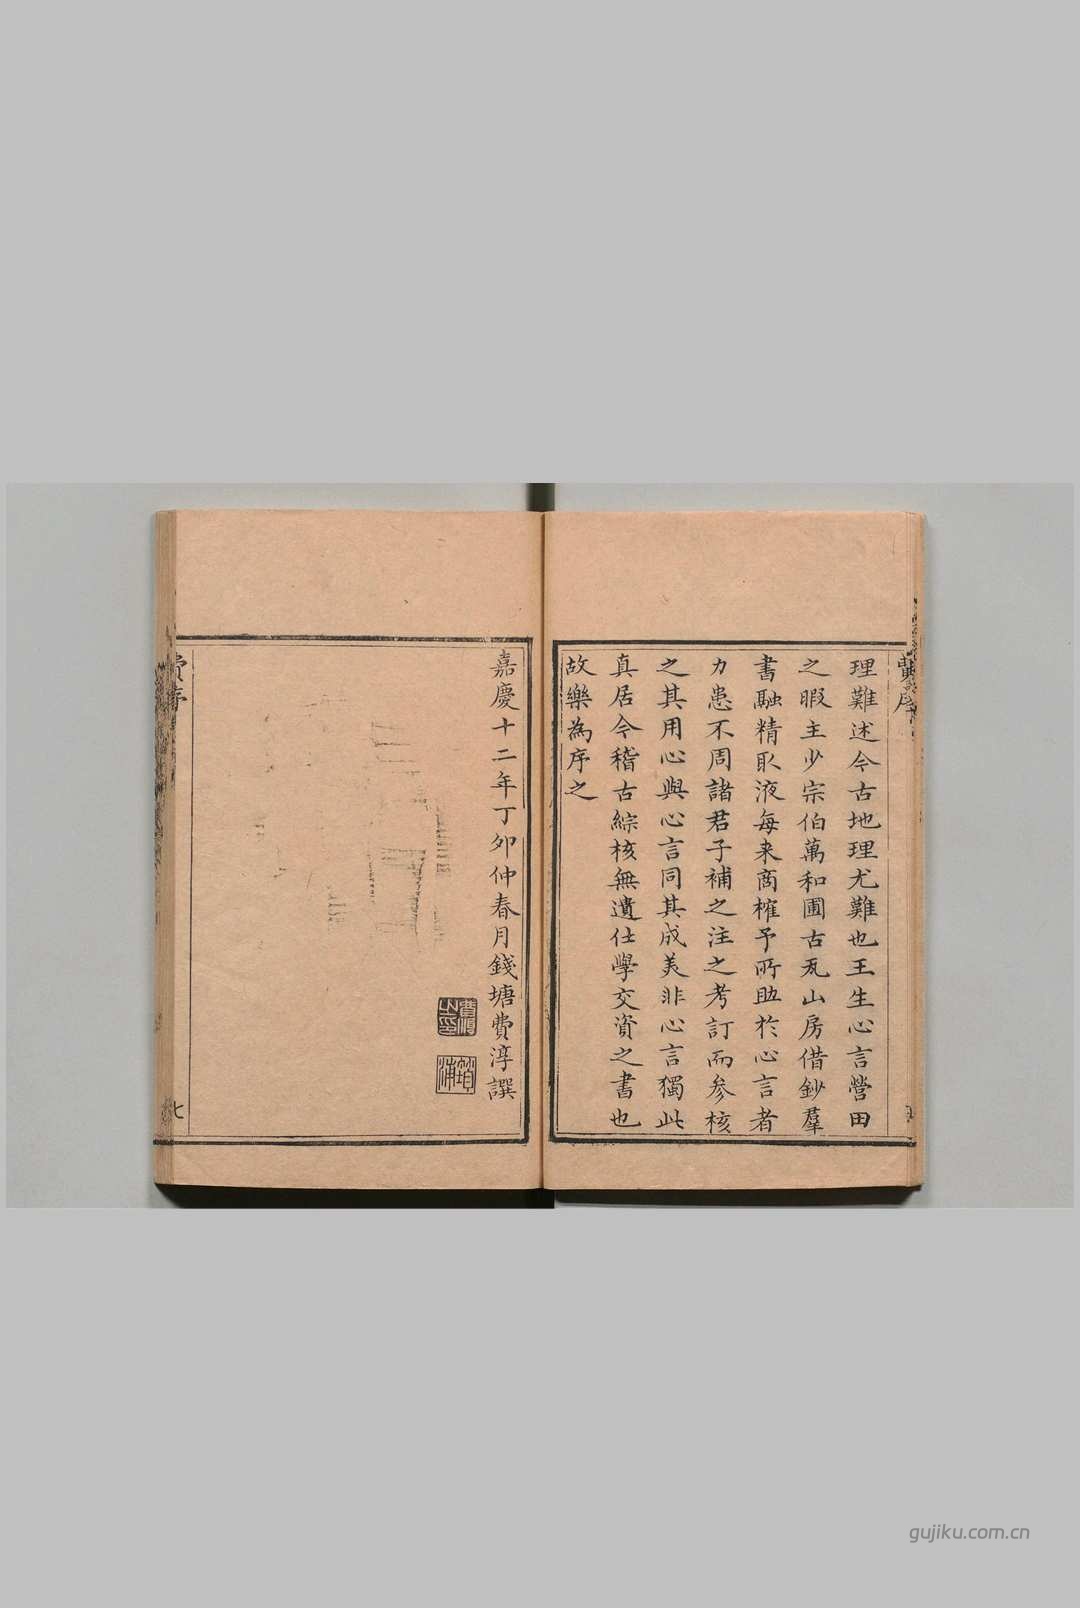 理難述今古地理尤難也王生心言營田
之暇主少宗伯萬和圃古瓦山房借鈔羣
書融精取液每来商榷予所助於心言者
力患不周諸君子補之注之考訂而参核
之其用心與心言同其成美非心言獨此
真居今稽古綜核無遺仕學交資之書也
故樂為序之
嘉慶十二年丁卯仲春月錢塘費淳撰
費序
七
gujiku.com.cn